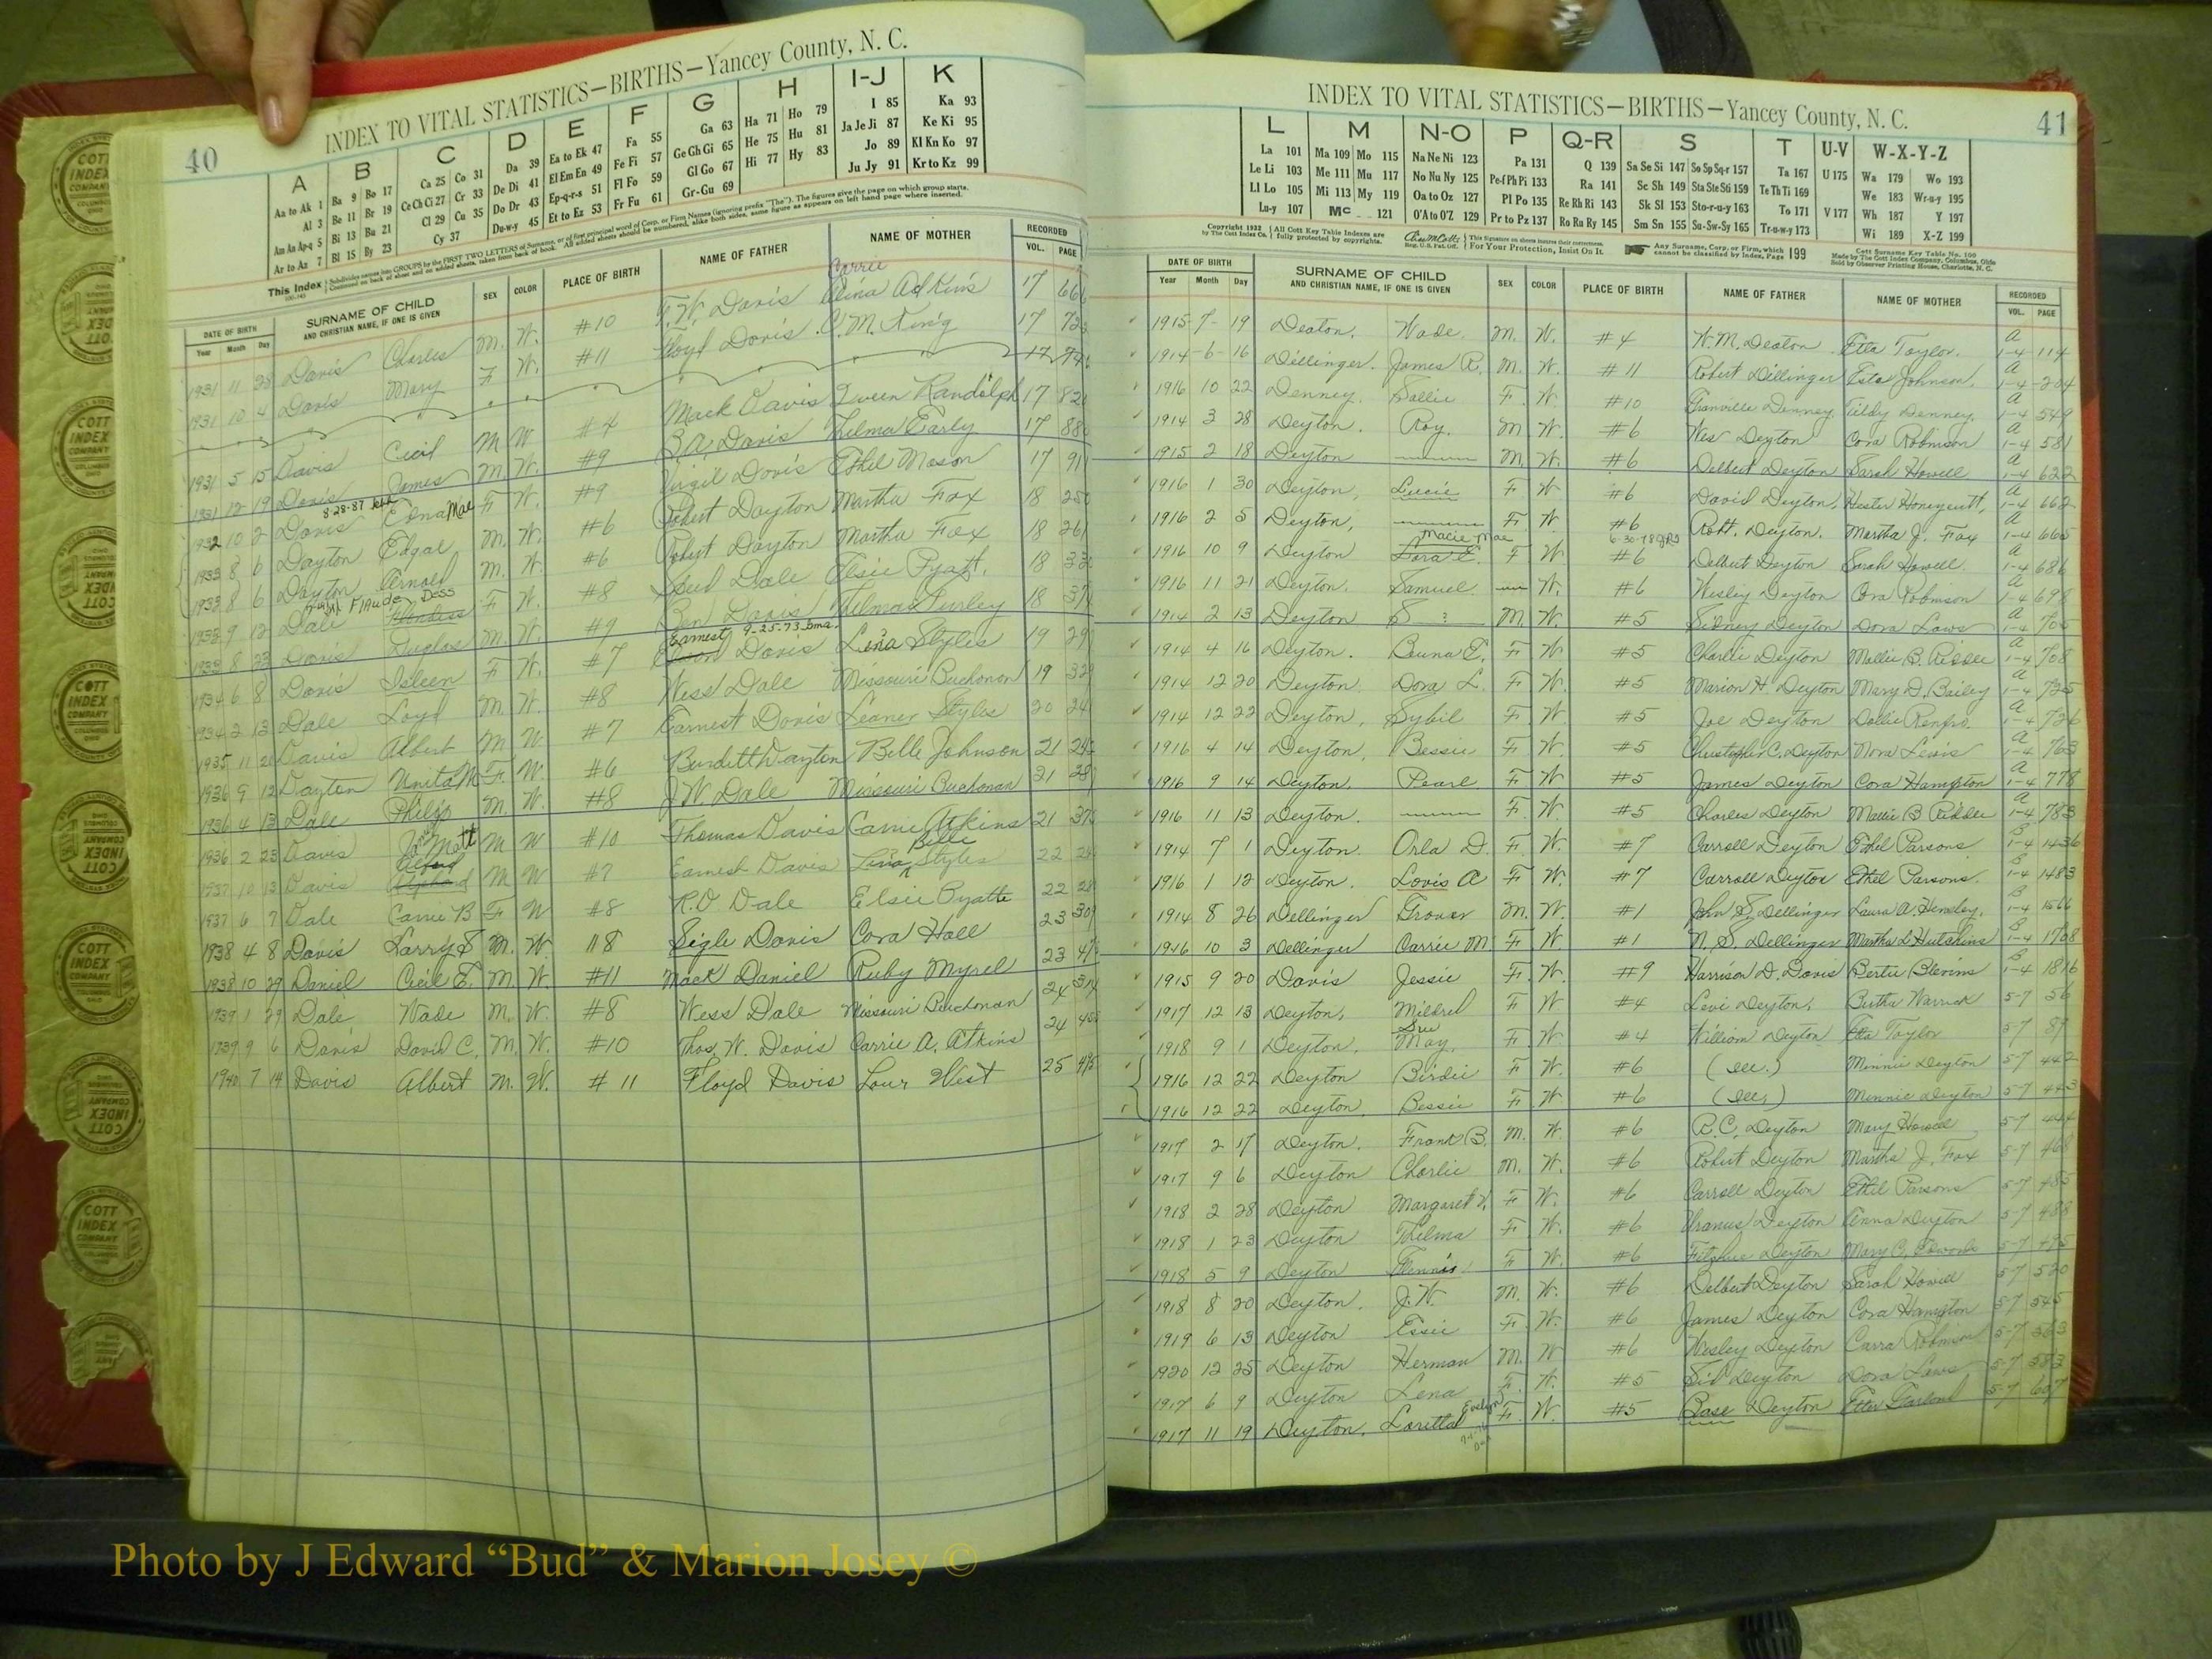 40
INDEX TO VITAL STATISTICS—BIRTHS—Yancey County, N. C.
A B C D E F G H I-J K
Aa to Ak 1 Ba 9 Bo 17 Ca 25 Co 31 Da 39 Ea to Ek 47 Fa 55 Ga 63 Ha 71 Ho 79 I 85 Ka 93
Al 3 Be 11 Br 19 Ce Ch Ci 27 Cr 33 De Di 41 El Em En 49 Fe Fi 57 Ge Gh Gi 65 He 75 Hu 81 Ja Je Ji 87 Ke Ki 95
Am An Ap-q 5 Bi 13 Bu 21 Cl 29 Cu 35 Do Dr 43 Ep-q-r-s 51 Fl Fo 59 Gl Go 67 Hi 77 Hy 83 Jo 89 Kl Kn Ko 97
Ar to Az 7 Bl 15 By 23 Cy 37 Du-w-y 45 Et to Ez 53 Fr Fu 61 Gr-Gu 69 Ju Jy 91 Kr to Kz 99
This Index Subdivides names into GROUPS by the FIRST TWO LETTERS of Surname, or of first principal word of Corp. or Firm Names (ignoring prefix "The"). The figures give the page on which group starts.
Continued on back of sheet and on added sheets, taken from back of book. All added sheets should be numbered, alike both sides, same figure as appears on left hand page where inserted.
DATE OF BIRTH SURNAME OF CHILD SEX COLOR PLACE OF BIRTH NAME OF FATHER NAME OF MOTHER RECORDED
Year Month Day AND CHRISTIAN NAME, IF ONE IS GIVEN VOL. PAGE
Carrie
1931 11 28 Davis Charles M. W. #10 T. W. Davis Adkins 17
1931 10 4 Davis Mary F W. #11 Floyd Davis C. M. King 17
17
1931 5 15 Davis Cecil M W #4 Mack Davis Randolph 17
1931 12 19 Davis James M W. #9 B. A. Davis Thelma Early 17
8-28-87
1932 10 2 Davis Edna Mae F W. #9 Virgil Davis Ethel Mason 17 91
1933 8 6 Dayton Edgar M. W. #6 Robert Dayton Martha Fox 18
1933 8 6 Dayton Arnold M. W. #6 Robert Dayton Martha Fox 18
Flaude Dess
1933 9 12 Dale F W. #8 Dale Elsie Pyatt. 18
1933 8 23 Davis Duglas M. W. #9 Ben Davis 18
Earnest 9-25-73
1934 6 8 Davis Isleen F W. #7 Davis Lena Styles 19
1934 2 13 Dale Loyd M W. #8 Wess Dale Missouri Buchanan 19
1935 11 Davis Albert M W. #7 Earnest Davis Styles 20
1936 9 12 Dayton M F W. #6 Burdett Dayton Belle Johnson 21
1936 4 13 Dale Philip M. W. #8 J. W. Dale Missouri Buchanan 21
1936 2 23 Davis Matt M W #10 Thomas Davis Carrie Atkins 21
Belle
1937 10 13 Davis M W #7 Earnest Davis Styles 22
1937 6 7 Dale Carrie B F W #8 R.D Dale Elsie Pyatte 22
1938 4 8 Davis Larry S M. W. #8 Sigle Davis Cora Hall 23
1938 10 29 Daniel Cecil E. M. W. #11 Mack Daniel Ruby 23
1939 1 29 Dale Wade M. W. #8 Wess Dale Missouri Buchanan 24
1939 9 6 Davis David C. M. W. #10 Thos. W. Davis Carrie A. Atkins 24
1940 7 14 Davis Albert M. W. #11 Floyd Davis Lour West 25
INDEX TO VITAL STATISTICS—BIRTHS—Yancey County, N. C.
41
L M N-O P Q-R S T U-V W-X-Y-Z
La 101 Ma 109 Mo 115 Na Ne Ni 123 Pa 131 Q 139 Sa Se Si 147 So Sp Sq-r 157 Ta 167 U 175 Wa 179 Wo 193
Le Li 103 Me 111 Mu 117 No Nu Ny 125 Pe-f Ph Pi 133 Ra 141 Sc Sh 149 Sta Ste Sti 159 Te Th Ti 169 We 183 Wr-u-y 195
Ll Lo 105 Mi 113 My 119 Oa to Oz 127 Pl Po 135 Re Rh Ri 143 Sk Sl 153 Sto-r-u-y 163 To 171 V 177 Wh 187 Y 197
Lu-y 107 Mc 121 O'A to O'Z 129 Pr to Pz 137 Ro Ru Ry 145 Sm Sn 155 Su-Sw-Sy 165 Tr-u-w-y 173 Wi 189 X-Z 199
Copyright 1932 by The Cott Index Co. All Cott Key Table Indexes are fully protected by copyrights. Reg. U.S. Pat. Off. This Signature on sheets insures their correctness. For Your Protection, Insist On It. Any Surname, Corp. or Firm, which cannot be classified by Index, Page 199 Cott Surname Key Table No. 100 Made by The Cott Index Company, Columbus, Ohio Sold by Observer Printing House, Charlotte, N. C.
DATE OF BIRTH SURNAME OF CHILD SEX COLOR PLACE OF BIRTH NAME OF FATHER NAME OF MOTHER RECORDED
Year Month Day AND CHRISTIAN NAME, IF ONE IS GIVEN VOL. PAGE
1915 7 19 Deaton. Wade M. W. #4 W. M. Deaton Etta Taylor. A 1-4 114
1914 6 16 Dellinger. James R. M. W. #11 Robert Dillinger Esta Johnson. A 1-4 204
1916 10 22 Denney. Sallie F. W. #10 Granville Denney Tildy Denney A 1-4 549
1914 3 28 Deyton. Roy. M W. #6 Wes Deyton Cora Robinson A 1-4 581
1915 2 18 Deyton M. W. #6 Delbert Deyton Sarah Howell A 1-4 622
1916 1 30 Deyton, Lucie F W #6 David Deyton, Hester Honeycutt, A 1-4 662
1916 2 5 Deyton, F. W #6 Robt. Deyton. Martha J. Fox A 1-4 665
Macie Mae
1916 10 9 Deyton F W #6 Delbert Deyton Sarah Howell. A 1-4 686
1916 11 21 Deyton. Samuel W. #6 Wesley Deyton Cora Robinson A 1-4
1914 2 13 Deyton S ? M W. #5 Sidney Deyton Dora Laws A 1-4
1914 4 16 Deyton. Beuna E. F W #5 Charlie Deyton Mallie B. Riddle A 1-4 708
1914 12 20 Deyton. Dora L. F W. #5 Marion H. Deyton Mary D. Bailey A 1-4 725
1914 12 22 Deyton, Sybil F W #5 Joe Deyton Dollie Renfro. A 1-4 726
1916 4 14 Deyton, Bessie F W. #5 Christopher C. Deyton Nora Lewis A 1-4 763
1916 9 14 Deyton, Pearl F W. #5 James Deyton Cora Hampton A 1-4 778
1916 11 13 Deyton. F. W. #5 Charles Deyton Mallie B Riddle A 1-4 783
1914 7 1 Deyton. Orla D. F. W. #7 Carroll Deyton Ethel Parsons B 1-4 1436
1916 1 12 Deyton. Lovis A F W. #7 Carroll Deyton Ethel Parsons. B 1-4 1483
1914 8 26 Dellinger Grover M. W. #1 John S. Dellinger Laura A. Hensley. B 1-4 1566
1916 10 3 Dellinger Carrie M F W #1 N. S. Dellinger Martha L Hutchins B 1-4 1708
1915 9 20 Davis Jessie F. W. #9 Harrison D. Davis Bertie Blevins B 1-4 1816
1917 12 13 Deyton, Mildred F W #4 Levi Deyton, Bertha Warrick 5-7 56
Sue
1918 9 1 Deyton. May. F. W. #4 William Deyton Etta Taylor 5-7 89
1916 12 22 Deyton Birdie F W. #6 (Ille.) Minnie Deyton 5-7 442
1916 12 22 Deyton. Bessie F W #6 (Ille.) Minnie Deyton 5-7 443
1917 2 17 Deyton. Frank B. M. W. #6 R.C. Deyton Mary Howell 5-7 444
1917 9 6 Deyton Charlie M. W. #6 Robert Deyton Martha J. Fox 5-7 468
1918 2 28 Deyton Margaret V. F W. #6 Carroll Deyton Ethel Parsons 5-7 485
1918 1 23 Deyton Thelma F W. #6 Uranus Deyton Anna Deyton 5-7 488
1918 5 9 Deyton Glennis F W. #6 Fitzhue Deyton Mary C. Edwards 5-7 495
1918 8 20 Deyton. J. W. M. W. #6 Delbert Deyton Sarah Howell 5-7 520
1919 6 13 Deyton Essie F. W. #6 James Deyton Cora Hampton 5-7 545
1920 12 25 Deyton Herman M. W #6 Wesley Deyton Carra Robinson 5-7 563
1917 6 9 Deyton Lena F. W. #5 Sid Deyton Dora Laws 5-7 583
Evelyn
1917 11 19 Deyton, Loretta F W. #5 Base Deyton Etter Garland 5-7 607
Photo by J Edward “Bud” & Marion Josey ©